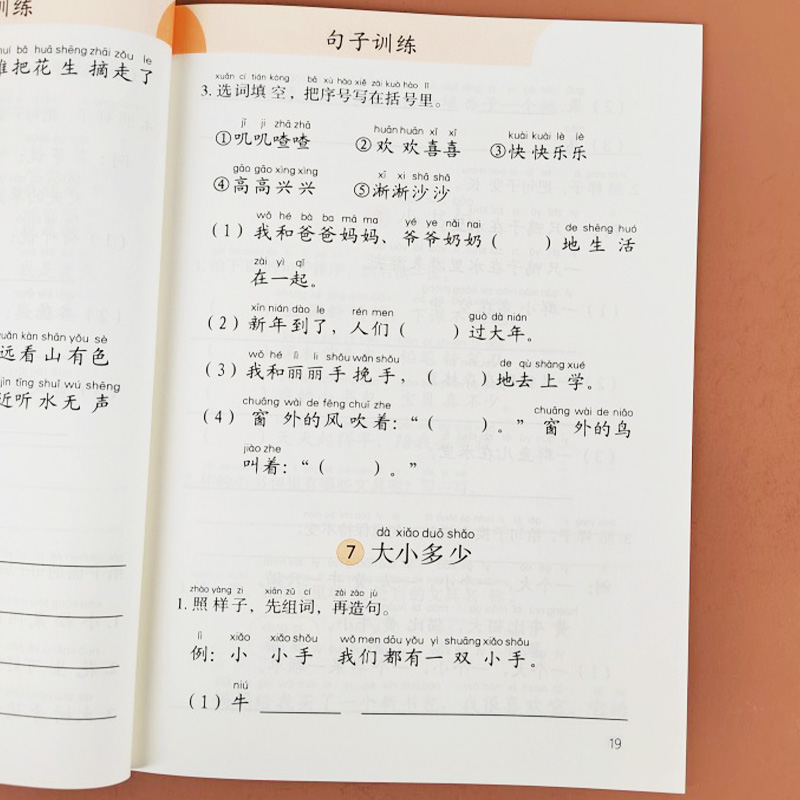 训练
bǎ huā shēng zhāi zǒu le
谁把花生摘走了
uǎn kàn shān yǒu sè
远看山有色
jìn tīng shuǐ wú shēng
近听水无声
句子训练
xuǎn cí tián kòng bǎ xù hào xiě zài kuò hào lǐ
3. 选词填空，把序号写在括号里。
jī ji zhā zhā huān huān xǐ xǐ kuài kuài lè lè
①叽叽喳喳 ②欢欢喜喜 ③快快乐乐
gāo gāo xìng xìng xī xi shā shā
④高高兴兴 ⑤淅淅沙沙
wǒ hé bà ba mā ma yé ye nǎi nai de shēng huó
（1）我和爸爸妈妈、爷爷奶奶（ ）地生活
zài yì qǐ
在一起。
xīn nián dào le rén men guò dà nián
（2）新年到了，人们（ ）过大年。
wǒ hé lì li shǒu wǎn shǒu de qù shàng xué
（3）我和丽丽手挽手，（ ）地去上学。
chuāng wài de fēng chuī zhe chuāng wài de niǎo
（4）窗外的风吹着：“（ ）。”窗外的鸟
jiào zhe
叫着：“（ ）。”
dà xiǎo duō shǎo
7 大小多少
zhào yàng zi xiān zǔ cí zài zào jù
1. 照样子，先组词，再造句。
lì xiǎo xiǎo shǒu wǒ men dōu yǒu yì shuāng xiǎo shǒu
例：小 小手 我们都有一双小手。
niú
（1）牛
19